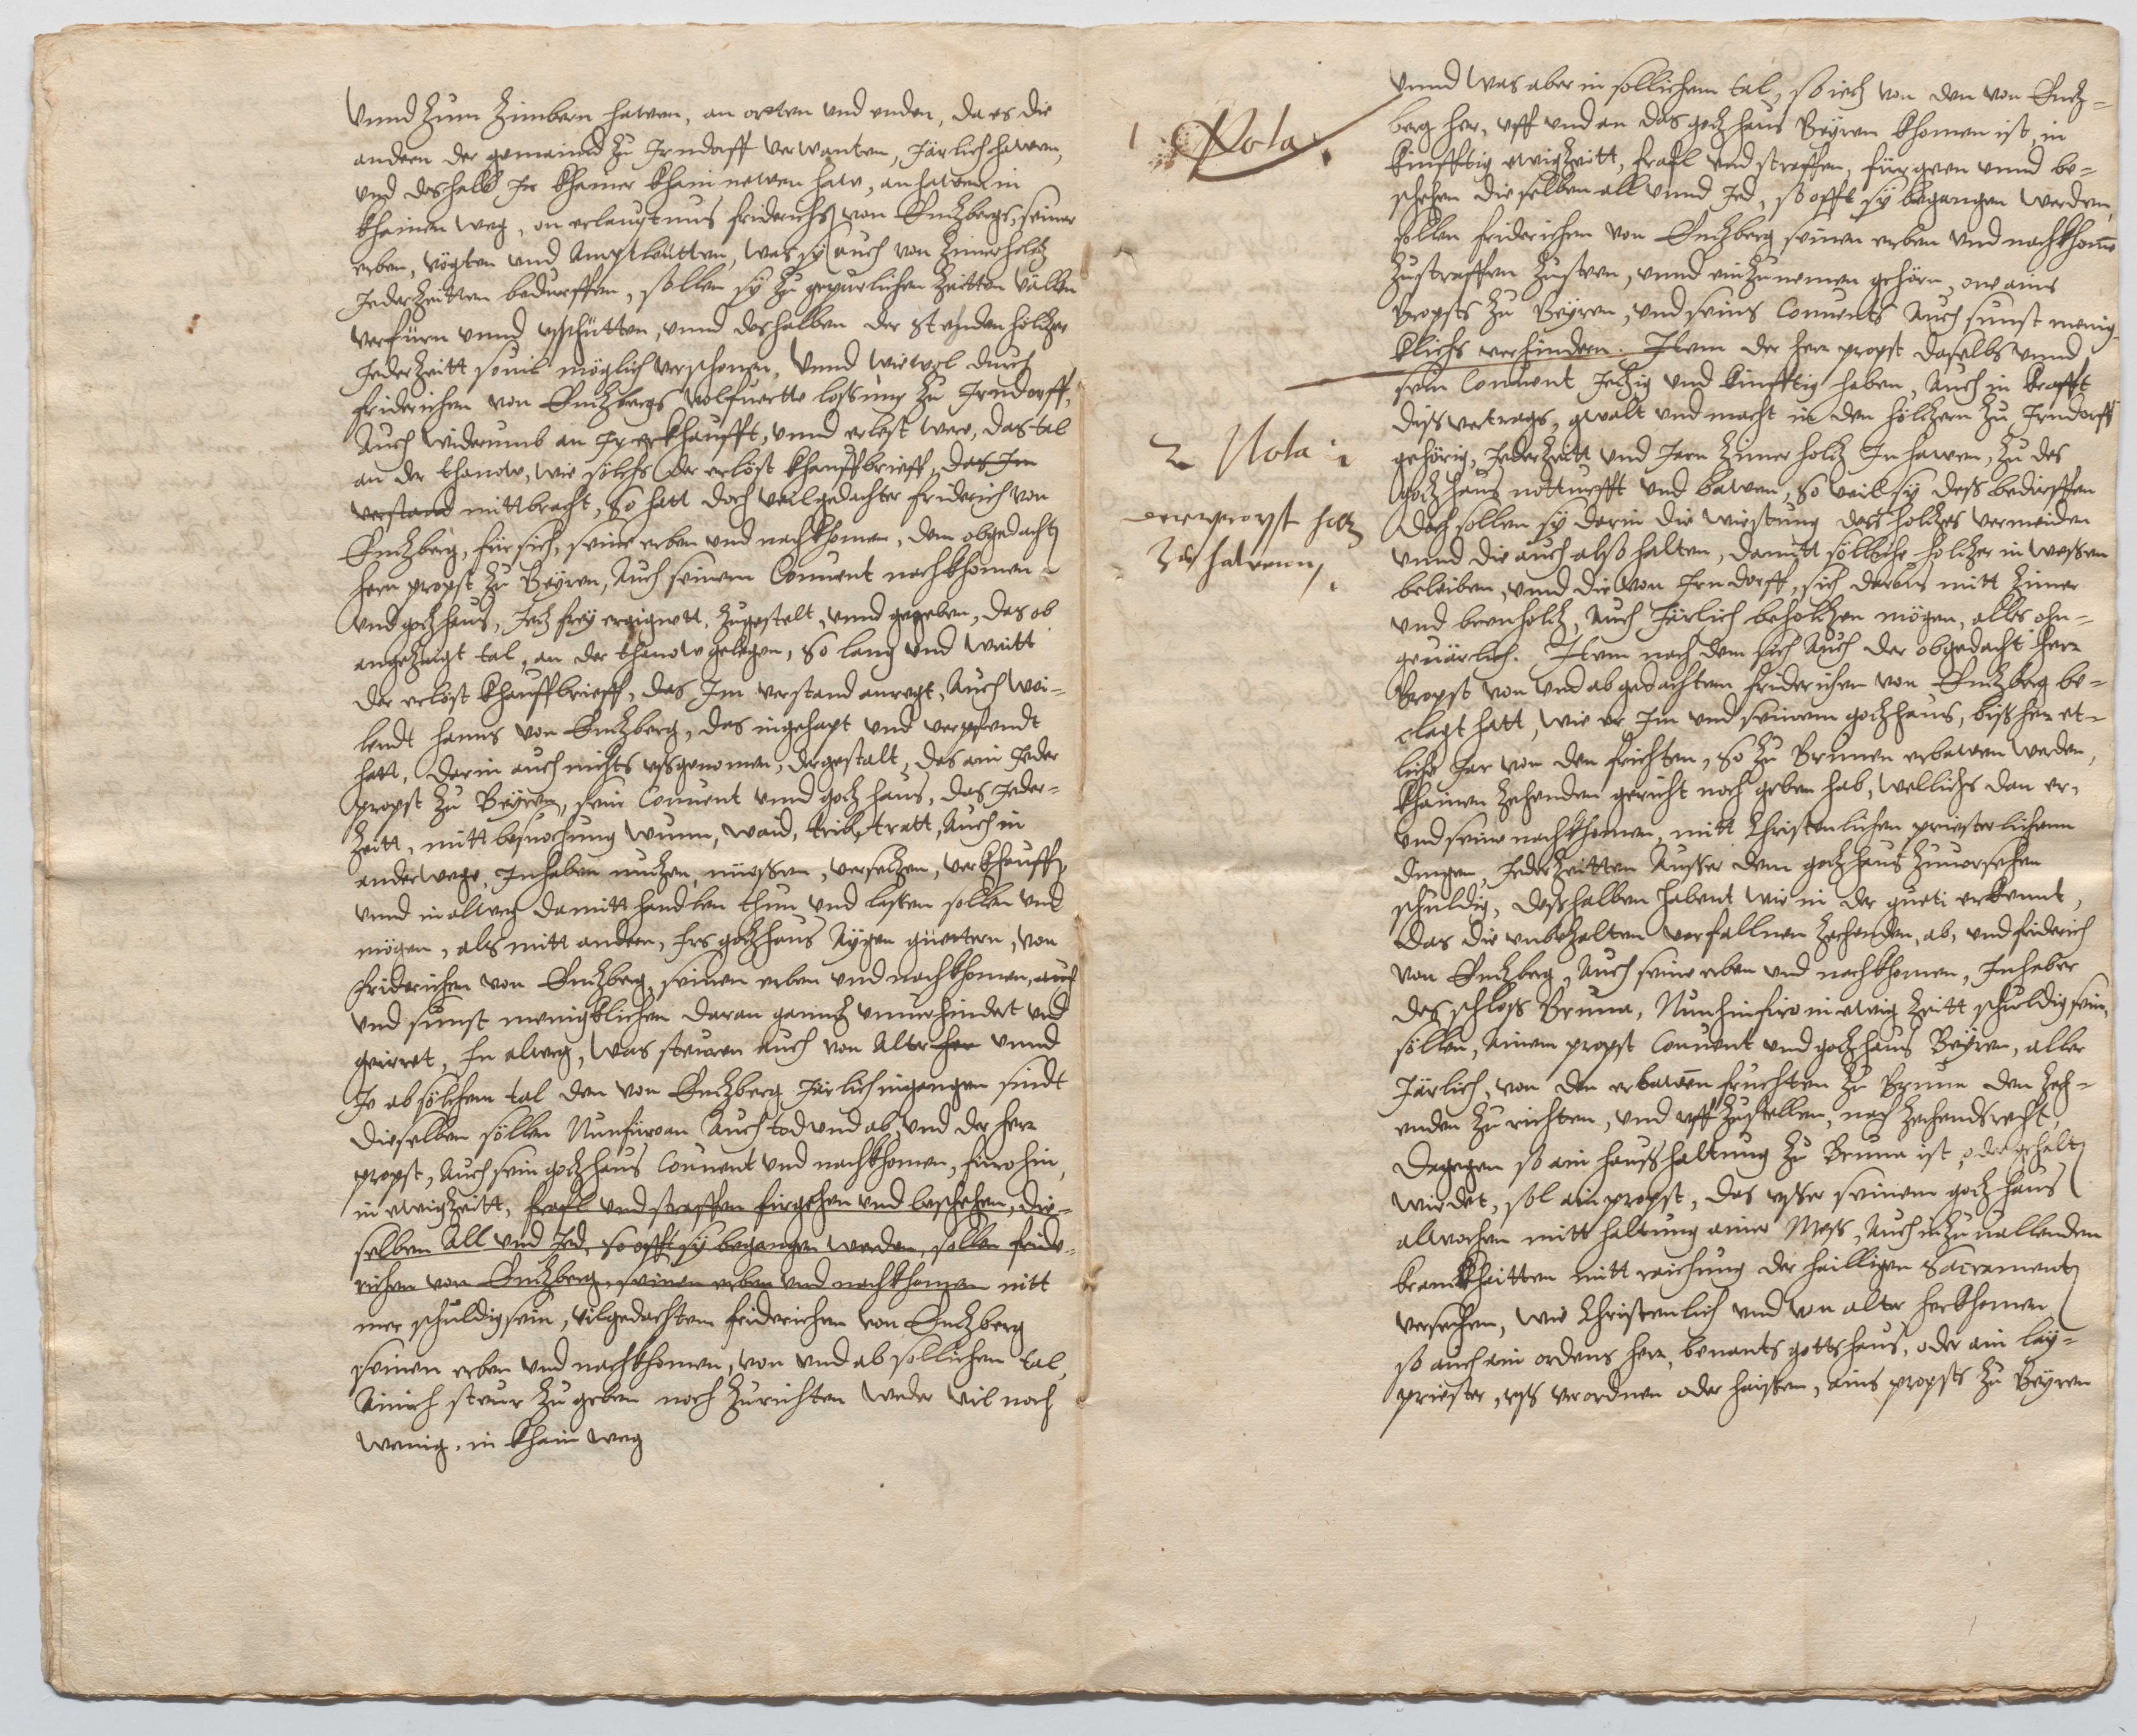 Vnnd zum Zimbern hawen, an orten vnd enden, da es die
andern der gemaind zu Irndorff verwanten, Järlich hawen,
vnd deshalb Ir khainer khain newen haw, anhawen in
khainen weg, on erlaugtnus friderichs von Entzbergs, seiner
erben, vögten vnd Amptleütten, was sÿ auch von Zimerholtz
Jederzeitten bedurffen, sollen sÿ zu gepurlichen Zeitten vällen
verfüren vnnd vffschütten, vnnd deshalben der stenden höltzer
Jederzeitt souil möglich verschonen, Vnnd wiewol durch
friderichen von Entzbergs volfuerte losung zu Irndorff,
Auch widerumb an Ir erkhaufft, vnnd erlest were, das tal
an der thanow, wie sölchs der erlöst khauffbrieff, das Im
verstand mittbracht, So hatt doch vielgedachter friderich von
Entzberg, für sich, seine erben vnd nachkhomen, dem obgedacht
hern propst zu Beÿren, Auch seinem Conuent nachkhomen
vnd gotzhaus, Jetz frey ergignett, zugestelt, vnnd gegeben, das ob
angezaigt tal, an der thanow gelegen, So lang vnd weitt
der erlöst khauffbrieff, das Im verstand anregt, Auch wei-
lendt hanns von Entzberg, das ingehapt vnd verpfendt
hatt, darin auch nichts vssgenomen, dergestalt, das ain Jeder
propst zu Beÿren, sein Conuent vnnd gotzhaus, das Jeder-
Zeitt, mitt besuochung wunn, waid, trib, tratt, Auch in
anderwege, Inhaben nutzen, niessen, versetzen, verkhauffen
vnnd in alweg damitt handlen thun vnd lassen sollen vnd
mögen, als mitt andern, Irs gotzhaus Aÿgen güettern, von
friderichen von Entzberg, seinen erben vnd nachkhomen, auch
vnd sunst menigklichem daran gantz vnuerhindert vnd
geirret, In alweg, was steuren auch von Alter her vnnd
Je ab sölchem tal den von Entzberg Järlich ingangen sindt
dieselben söllen Nunfüroan Auch tod vnd ab, vnd der herr
propst, Auch sein gotzhaus Conuent vnd nachkhomen, fürohin,
in ewig Zeitt, frefl vnd straffen firgehen vnd beschehen, die-
selben All vnd Jed, so offt sÿ begangen werden, sollen fride-
richen von Entzberg, seinen erben vnd nachkhomen nitt
mer schuldig sein, vilgedachtem friderichen von Entzberg
seinen erben vnd nachkhomen, von vnd ab sollichem tal,
Ainich steur zu geben noch zurichten weder vil noch
wenig, in khain weg
1 Nota
Vnnd was aber in sollichem tal, so ietz von den von Entz-
berg her, vff vnd an das gotzhaus Beÿren khomen ist, in
kinfftig ewig Zeitt, frefl vnd straffen, fürgeen vnnd be-
schehen dieselben all vnnd Jed, so offt sÿ begangen werden,
sollen friderichen von Entzberg seinen erben vnd nachkhomen
zustraffen zusteen, vnnd einzunemen gehörn, one ains
Propsts zu Beÿren, vnd seins Conuents Auch sunst menig-
klichs verhindern. Item der herr propst daselbs vnnd
sein Conuent Jetzig vnd kinfftig haben, Auch in krafft
diss vertrags, gwalt vnd macht in den höltzern zu Irndorff
2 Nota
gehörig, Jederzeitt vnd Jarn Zimer holtz Zu hawen, zu des
gotzhaus notturfft vnd bawen, so veil sÿ dess bedirffen
propst holtz
Zu hawen
doch sollen sÿ darin die wiestung des holtzes vermeiden
vnnd die auch also halten, damitt söllliche holtzer in wessen
beleiben, vnnd die von Irndorff, sich daraus mitt Zimer
vnd brenholtz, Auch Järlich beholtzen mögen, alles ohn-
geuärlich. Item nach dem sich Auch der obgedacht herr
Propst von vnd ab gedachtem friderichen von Entzberg be-
clagt hatt, wie er Im vnd seinem gotzhaus, bissher et-
liche Jar von den frichten, so zu Brunen erbawen werden,
khainen Zehenden gericht noch geben hab, wellichs dan er,
vnd seine nachkhomen, mitt Christenlichen priesterlichenn
dingen, Jederzeitten Ausser dem gotzhaus zuuorsehen
schuldig, desshalben habent wir in der gueti erkennt,
das die vnbezalten verfallnen Zechenden, ab, vnd friderich
von Entzberg, Auch seine erben vnd nachkhomen, Inhaber
des schloss Brunn, Nun hinfüro in ewig Zeitt schuldig sein,
söllen, Ainem propst Conuent vnd gotzhaus Beÿren, aller
Järlich, von den erbawen fruchten zu Brunn den Zech-
enden zu richten, vnd vffzustellen, nach Zechends recht,
Dagegen so ain hausshaltung zu Brunn ist, oder gehalten
wirdet, sol ain propst, das vsser seinem gotzhaus
alwochen mitt haltung ainer Mess, Auch in zuuallenden
kranckhaitten mitt raichung der hailligen Sacrament
versechen, wie Christenlich vnd von alter herkhomen,
so auch ain ordens herr, benants gottshaus, oder ain lay-
priester, vss verordnen oder haissen, ains propsts zu Beÿren